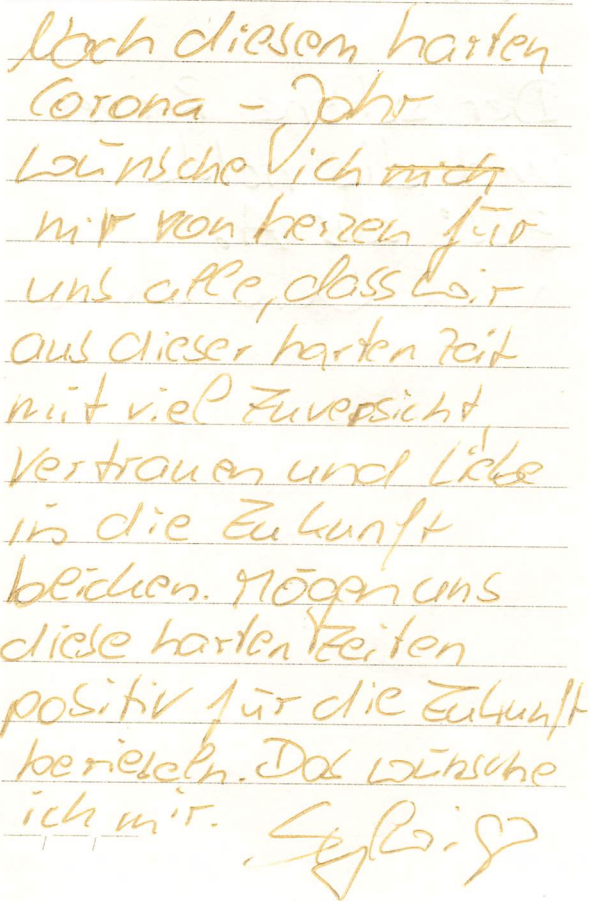 Nach diesem harten
Corona - Jahr
wünsche ich mich
mir von herzen für
uns alle, dass wir
aus dieser harten Zeit
mit viel Zuversicht,
Vertrauen und Liebe
in die Zukunft
blicken. Mögen uns
diese harten Zeiten
positiv für die Zukunft
berieseln. Das wünsche
ich mir.